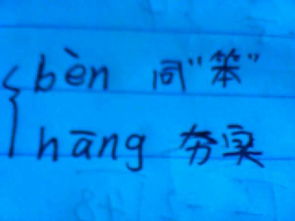 bèn 同"笨"
hāng 夯实